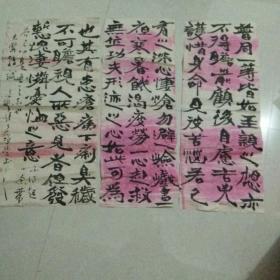 普同一等皆如至親之想亦
不得瞻前顧後自慮吉凶
護惜身命見彼苦惱若己
有之深心悽愴勿避險巇晝
夜寒暑飢渴疲勞一心赴救
無作功夫形迹之心如此可為
也其有患瘡痍下痢臭穢
不可瞻視人所惡見者但發
慚愧悽憐憂恤之意